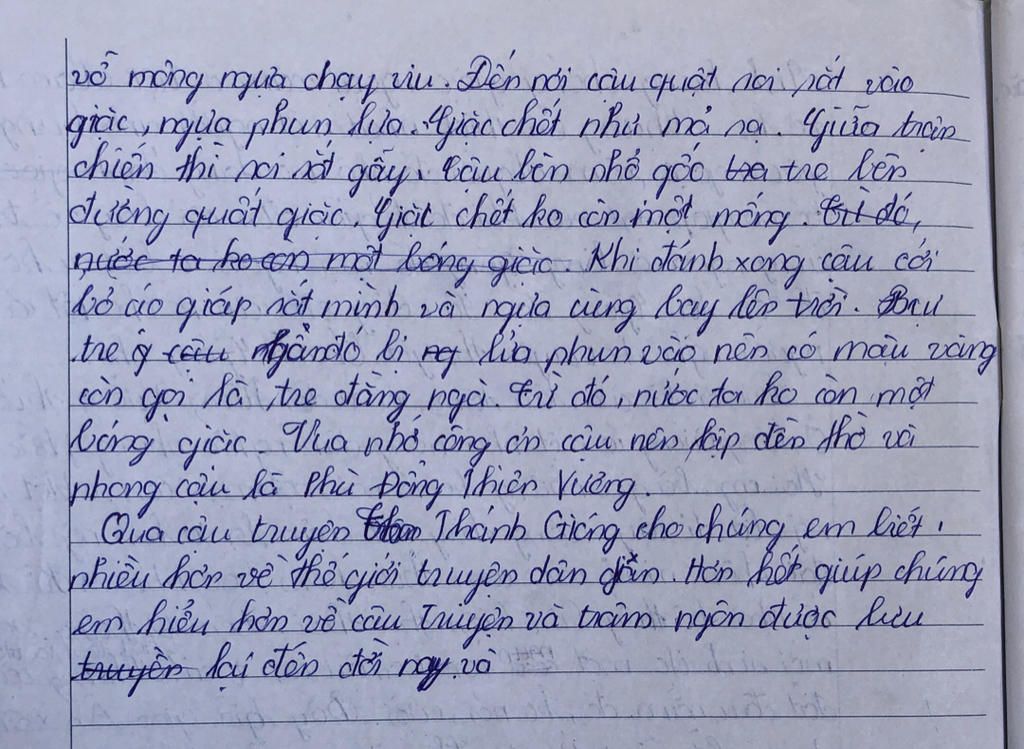 vỗ mông ngựa chạy vìu. Đến nơi cậu quật roi sắt vào
giặc, ngựa phun lửa. Giặc chết như mả rạ. Giữa trận
chiến thì roi sắt gẫy. Cậu bèn nhổ gốc tre tre bên
đường quất giặc. Giặc chết ko còn một mống. Từ đó,
nước ta ko còn một bóng giặc. Khi đánh xong cậu cởi
bỏ áo giáp sắt mình và ngựa cùng bay lên trời. Bụi
tre ở cậu gần đó bị lửa phun vào nên có màu vàng
còn gọi là tre đằng ngà. Từ đó, nước ta ko còn một
bóng giặc. Vua nhớ công ơn cậu nên lập đền thờ và
phong cậu là Phù Đổng Thiên Vương.
Qua câu truyện Thánh Gióng cho chúng em biết
nhiều hơn về thế giới truyện dân gian. Hơn hết giúp chúng
em hiểu hơn về câu truyện và trâm ngôn được lưu
truyền lại đến đời nay và